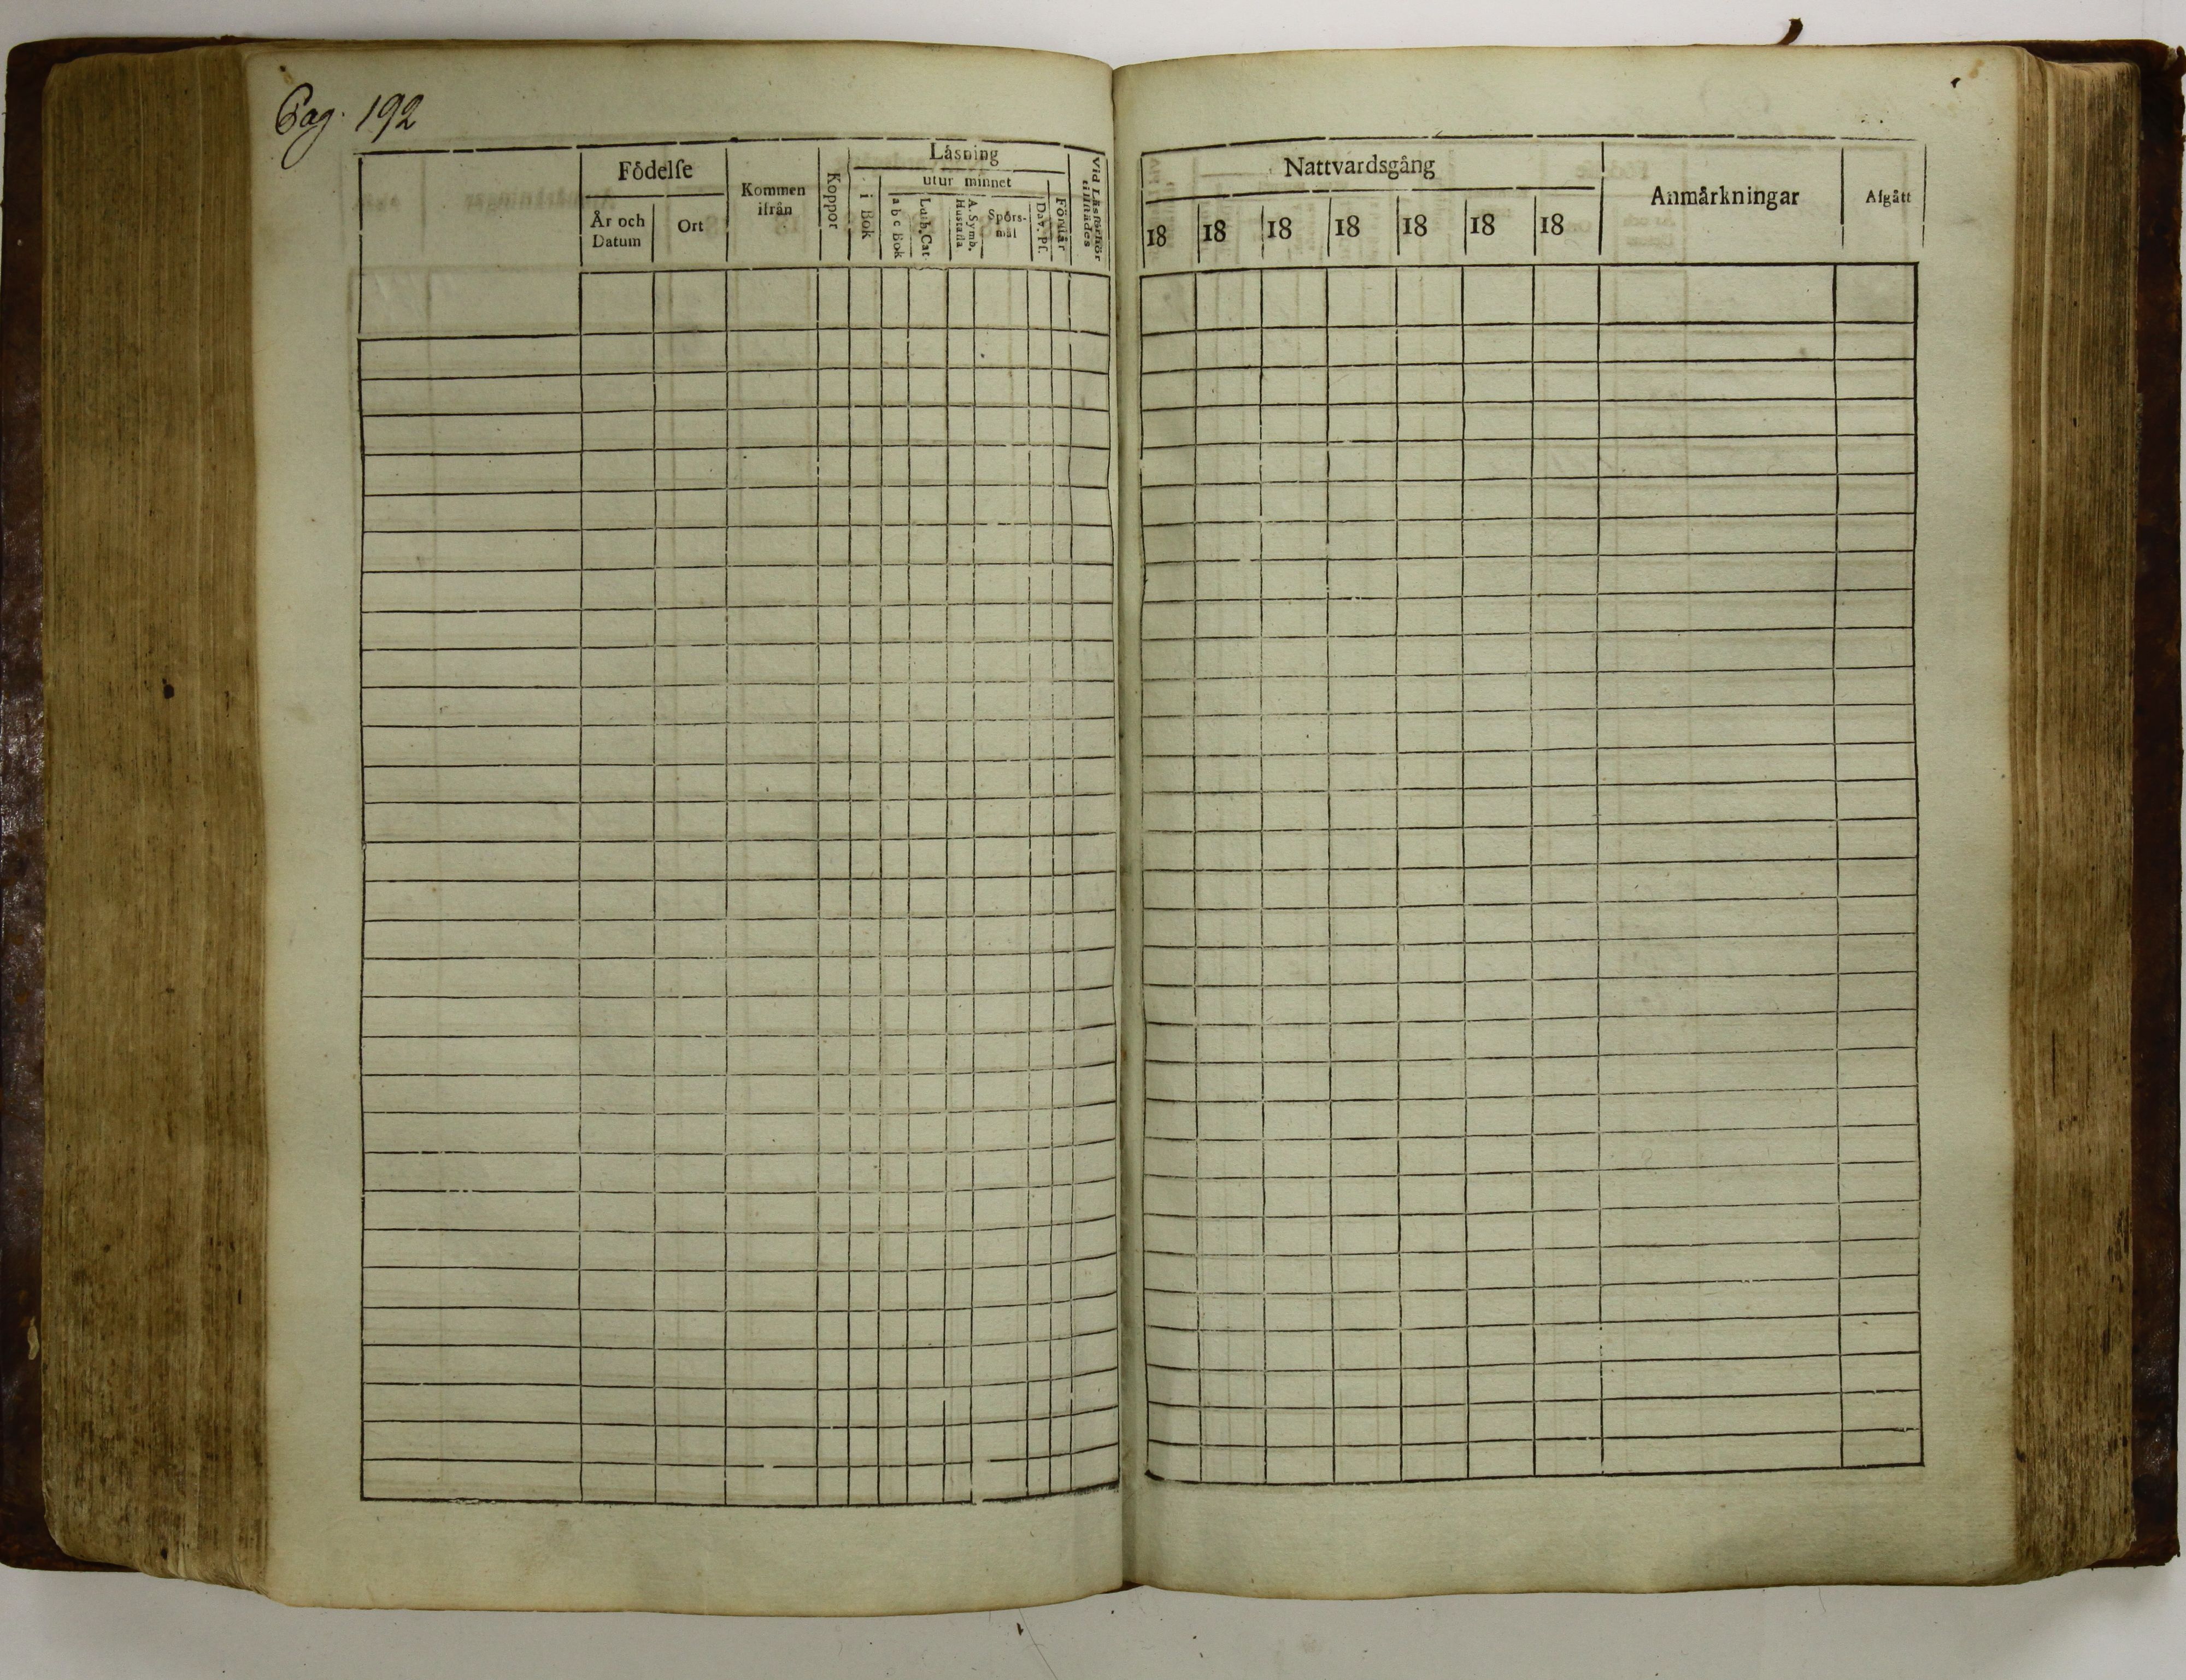 Pag. 192
Födelse
År och Datum
Ort
Kommen ifrån
Koppor
Läsning
i Bok
utur minnet
a b c Bok
Luth. Cat.
A. Symb. Hustafla
Spörsmål
Dav. Ps.
Förstår
Vid Läsförhör tillstädes
Nattvardsgång
18 18 18 18 18 18 18
Anmärkningar
Afgått